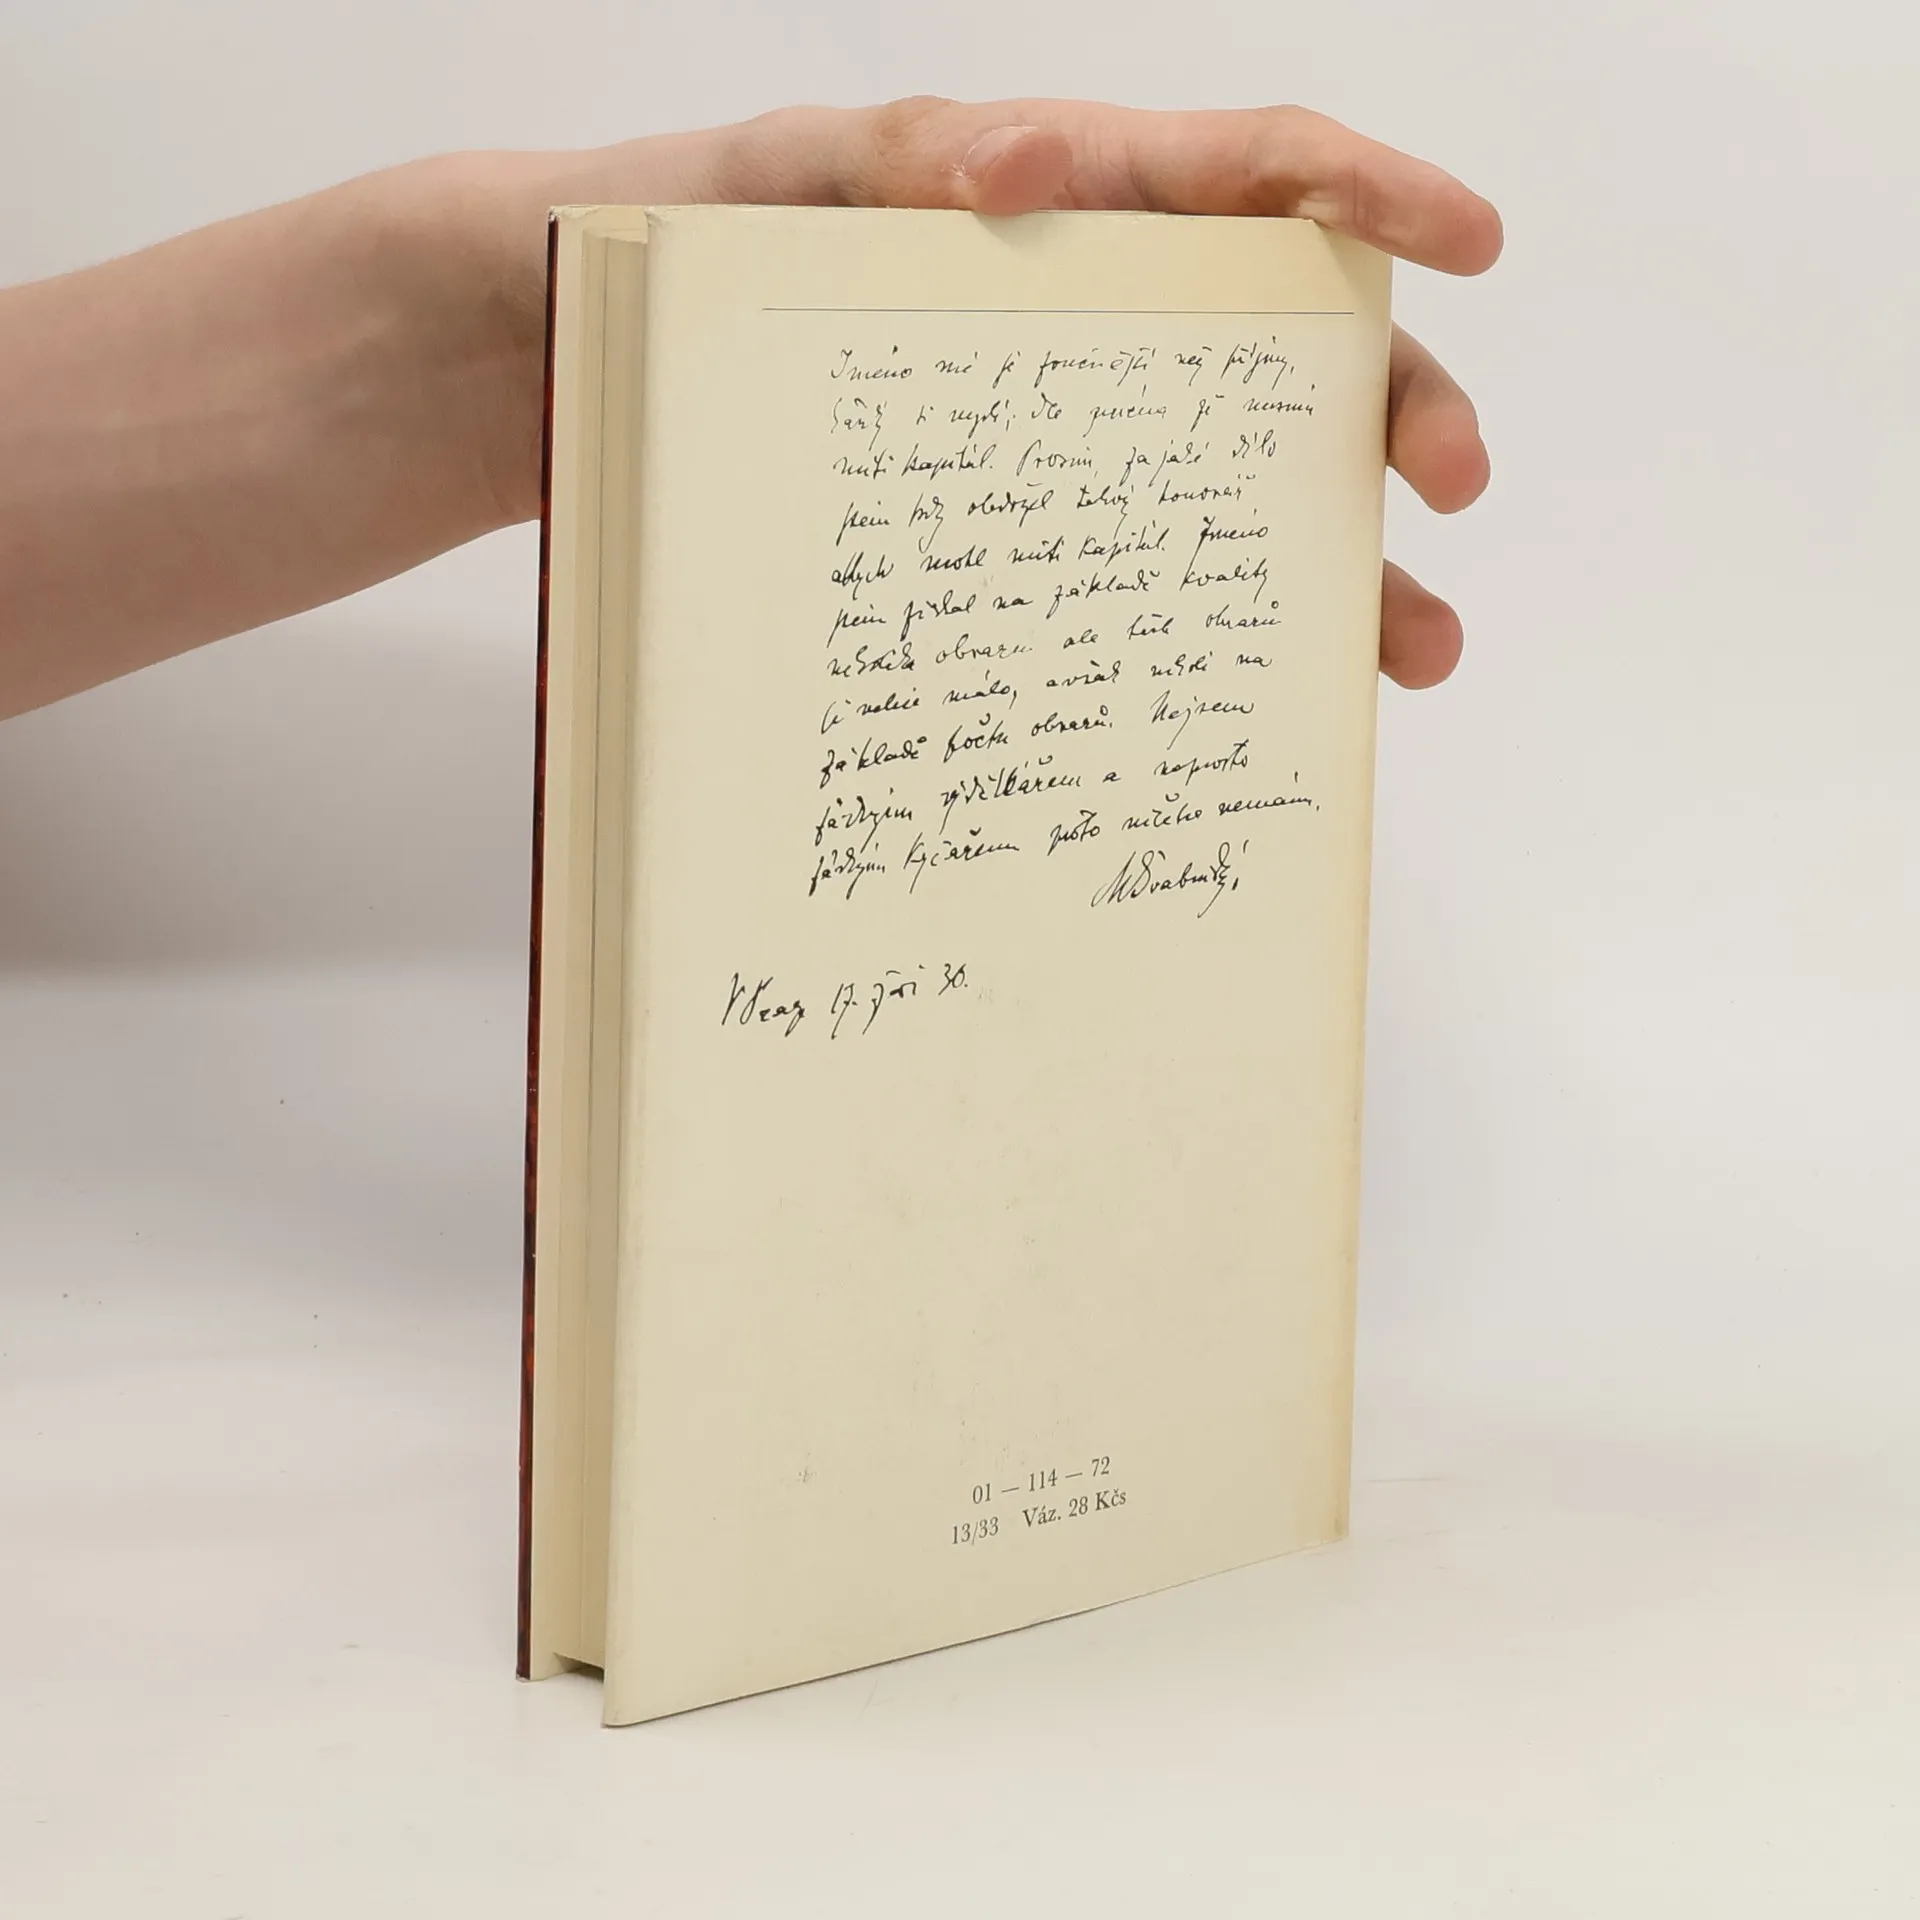 Jméno mé je zvučnější než příjmy,
každý si myslí, dle jména že musím
míti kapitál. Prosím, za jaké dílo
jsem kdy obdržel takový honorář
abych mohl míti kapitál. Jméno
jsem získal na základě kvality
několika obrazů ale těch obrazů
je velice málo, avšak nikoli na
základě počtu obrazů. Nejsem
žádným výdělkářem a naprosto
žádným kýčařem proto ničeho nemám.
MŠvabinský
V Praze 17. září 30.
01 — 114 — 72
13/33 Váz. 28 Kčs